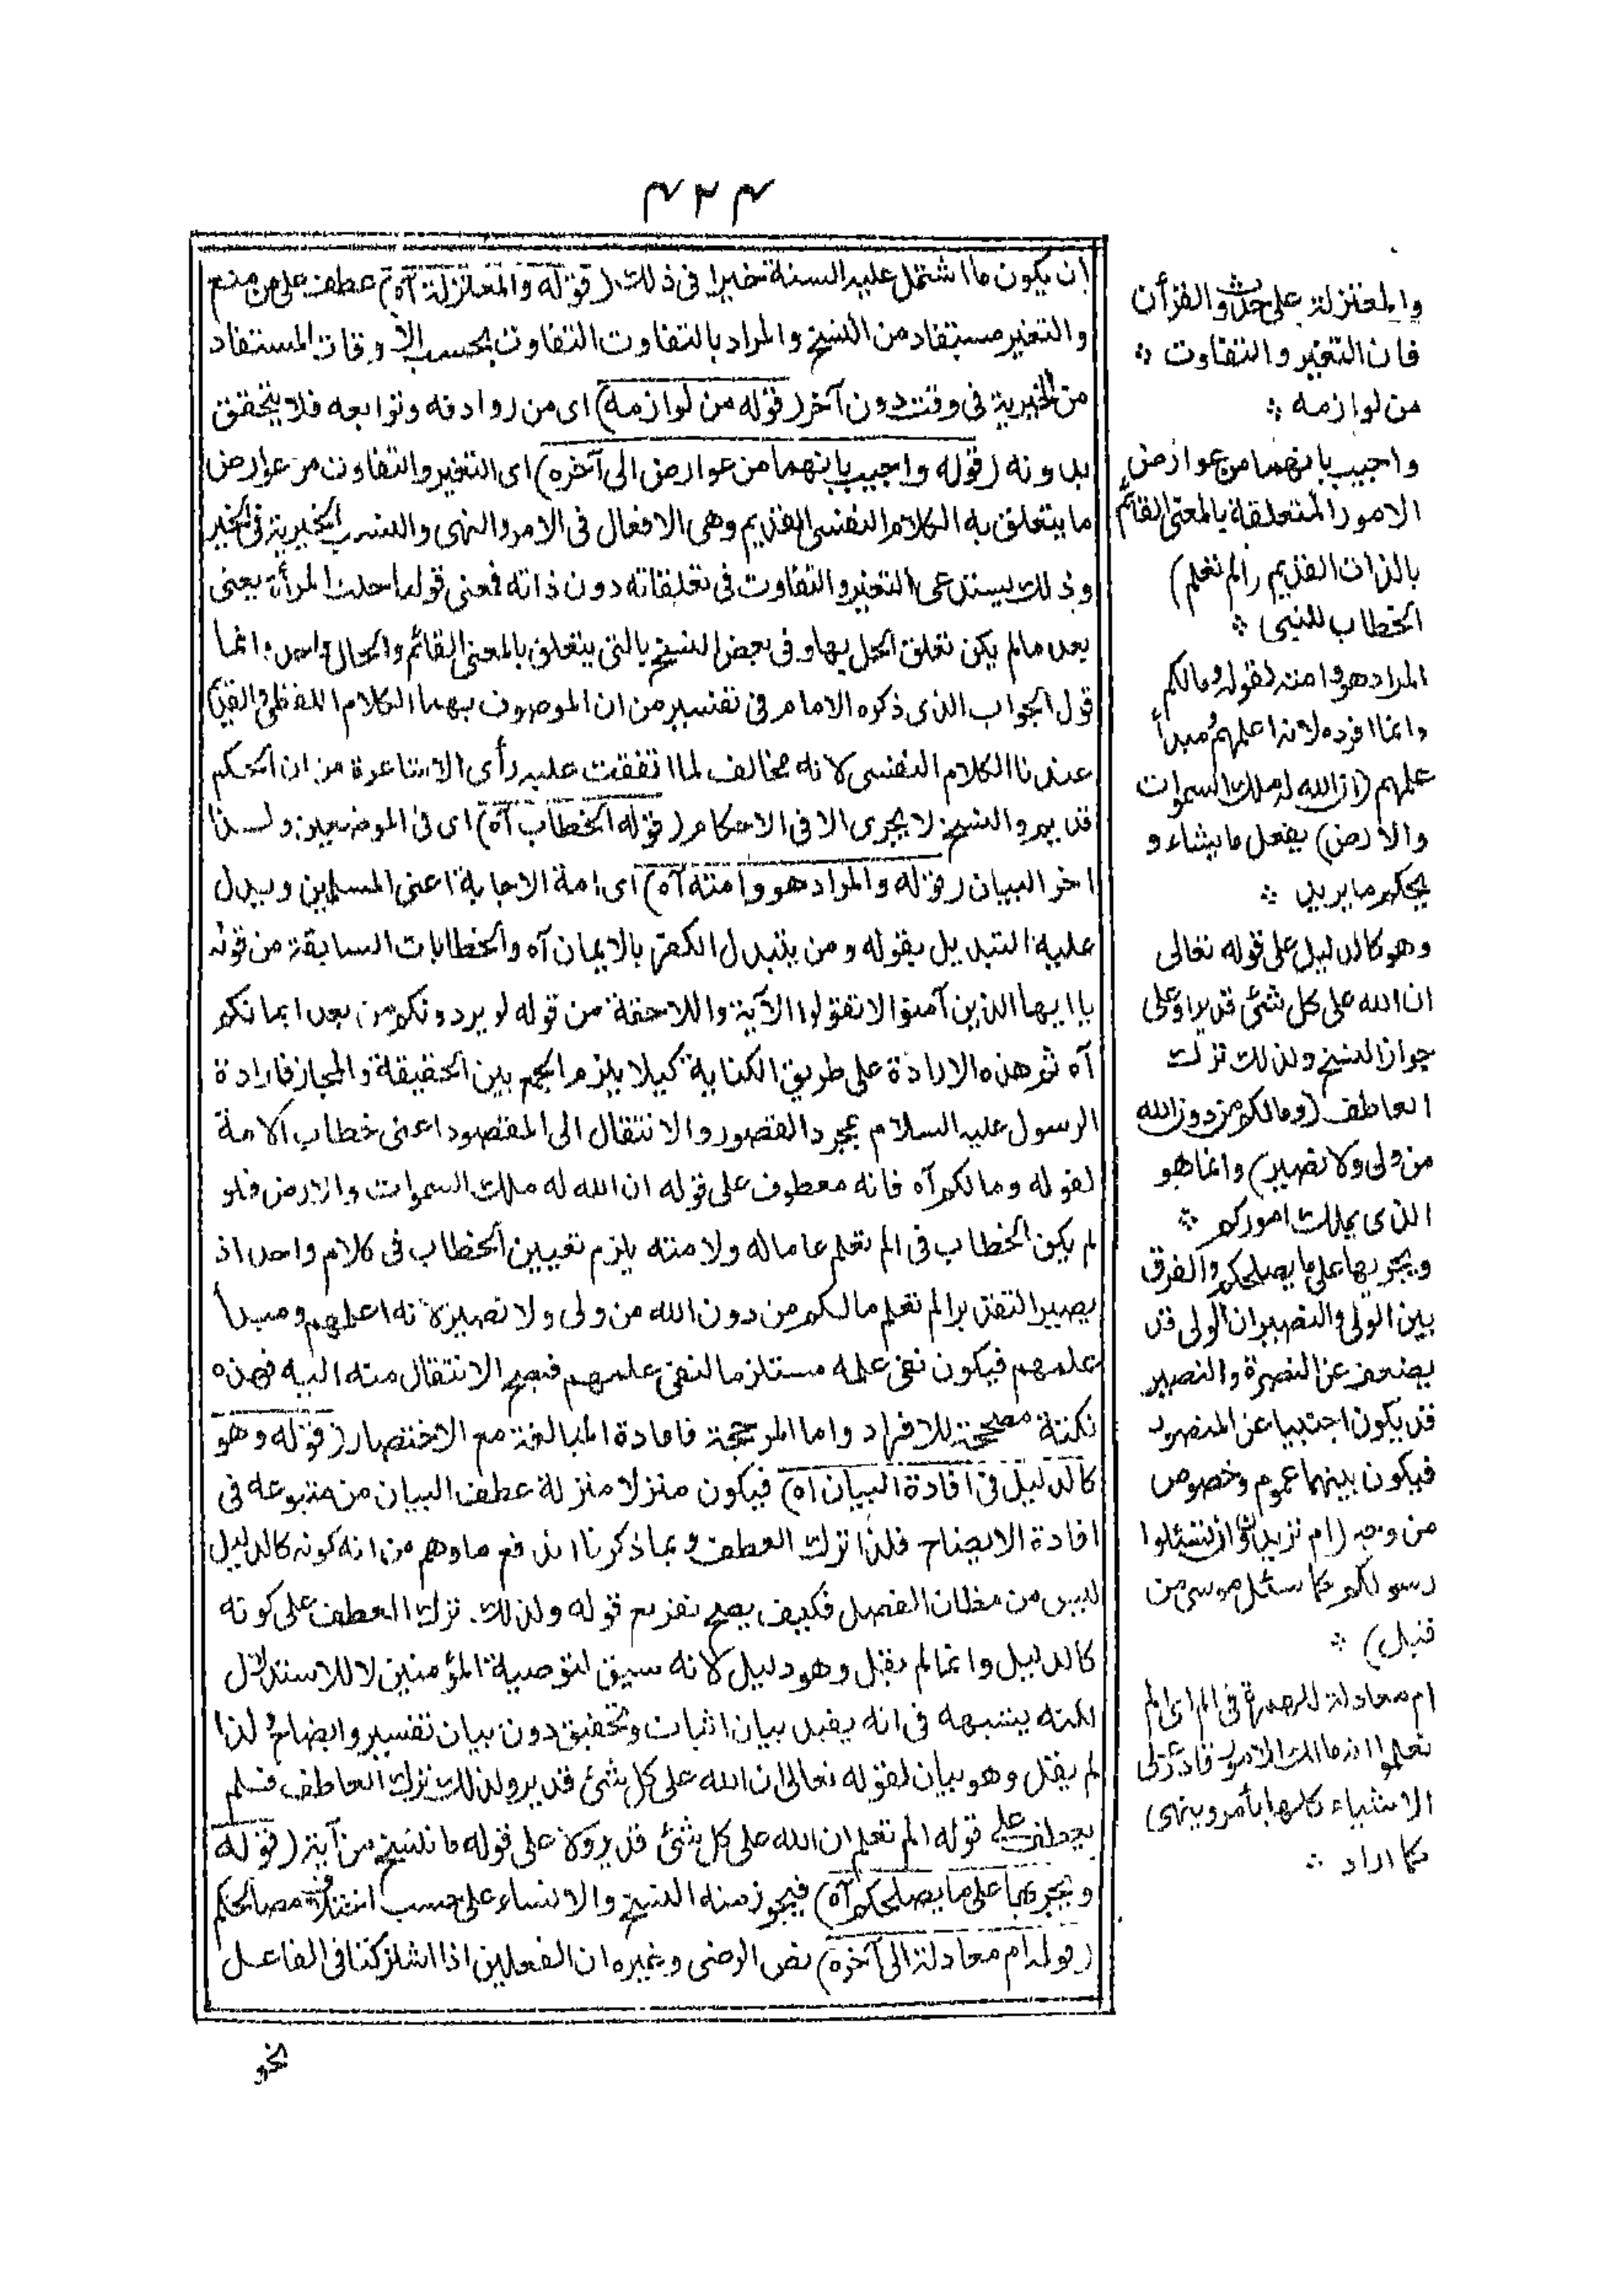 ٤٢٤
ان يكون ما اشتمل عليه السنة خيرا فى ذلك (قوله والمعتزلة آه) عطف على من منع
والتغير مستفاد من النسخ والمراد بالتفاوت التفاوت بحسب الاوقات المستفاد
من الخيرية فى وقت دون آخر (قوله من لوازمه) اى من روادفه وتوابعه فلا يتحقق
بدونه (قوله واجيب بانهما من عوارض الى آخره) اى التغير والتفاوت من عوارض
ما يتعلق به الكلام النفسى القديم وهى الافعال فى الامر والنهى والنسب الخبرية فى الخبر
وذلك يستدعى التغير والتفاوت فى تعلقاته دون ذاته فمعنى قولنا حلت المرأة يعنى
بعد ما لم يكن تعلق الحل بها وفى بعض النسخ بالتى يتعلق بالمعنى القائم والحال واحد وانما
قول الجواب الذى ذكره الامام فى تفسيره من ان الموصوف بهما الكلام اللفظى والقديم
عندنا الكلام النفسى لانه مخالف لما اتفقت عليه رأى الاشاعرة من ان الحكم
قديم والنسخ لا يجرى الا فى الاحكام (قوله الخطاب آه) اى فى الموضعين ولذا
اخر البيان (قوله والمراد هو وامته آه) اى امة الاجابة اعنى المسلمين ويدل
عليه التبديل بقوله ومن يتبدل الكفر بالايمان آه والخطابات السابقة من قوله
يا ايها الذين آمنوا لا تقولوا الآية واللاحقة من قوله لو يردونكم من بعد ايمانكم
آه ثم هذه الارادة على طريق الكناية كيلا يلزم الجمع بين الحقيقة والمجاز فارادة
الرسول عليه السلام بمجرد التصور والانتقال الى المقصود اعنى خطاب الامة
لقوله ومالكم آه فانه معطوف على قوله ان الله له ملك السموات والارض فلو
لم يكن الخطاب فى الم تعلم عاما له ولامته يلزم تعيين الخطاب فى كلام واحد اذ
يصير التقدير الم تعلم مالكم من دون الله من ولى ولا نصير لانه اعلمهم ومبدأ
علمهم فيكون نفى علمه مستلزما لنفى علمهم فيصح الانتقال منه اليه فهذه
نكتة مصححة للافراد واما المرجحة فافادة المبالغة مع الاختصار (قوله وهو
كالدليل فى افادة البيان اه) فيكون منزلا منزلة عطف البيان من متبوعه فى
افادة الايضاح فلذا ترك العطف وبما ذكرنا اندفع ما وهم من انه كونه كالدليل
ليس من مظان الفصل فكيف يصح تفريع قوله ولذلك ترك العطف على كونه
كالدليل وانما لم يقل وهو دليل لانه سيق لتوصية المؤمنين لا للاستدلال
لكنه يشبهه فى انه يفيد بيان اثبات وتحقيق دون بيان تفسير وايضاح لذا
لم يقل وهو بيان لقوله تعالى ان الله على كل شئ قدير ولذلك ترك العاطف فلم
يعطف على قوله الم تعلم ان الله على كل شئ قدير ولا على قوله ما ننسخ من آية (قوله
ويجريها على ما يصلحكم آه) فيجوز منه النسخ والانساء على حسب اختلاف مصالحكم
(قوله ام معادلة الى آخره) نص الرضى وغيره ان الفعلين اذا اشتركتا فى الفاعل
نحو
والمعتزلة على حدوث القرأن
فان التغير والتفاوت
من لوازمه
واجيب بانهما من عوارض
الامور المتعلقة بالمعنى القائم
بالذات القديم (الم تعلم)
الخطاب للنبى
المراد هو وامته لقوله ومالكم
وانما افرده لانه اعلمهم ومبدأ
علمهم (ان الله له ملك السموات
والارض) يفعل ما يشاء و
يحكم ما يريد
وهو كالدليل على قوله تعالى
ان الله على كل شئ قدير او على
جواز النسخ ولذلك ترك
العاطف (ومالكم من دون الله
من ولى ولا نصير) وانما هو
الذى يملك اموركم
ويجريها على ما يصلحكم والفرق
بين الولى والنصير ان الولى قد
يضعف عن النصرة والنصير
قد يكون اجنبيا عن المنصور
فيكون بينهما عموم وخصوص
من وجه (ام تريدون ان تسئلوا
رسولكم كما سئل موسى من
قبل)
ام معادلة للهمزة فى الم اى الم
تعلموا انه مالك الامور قادر على
الاشياء كلها يأمر وينهى
كما اراد